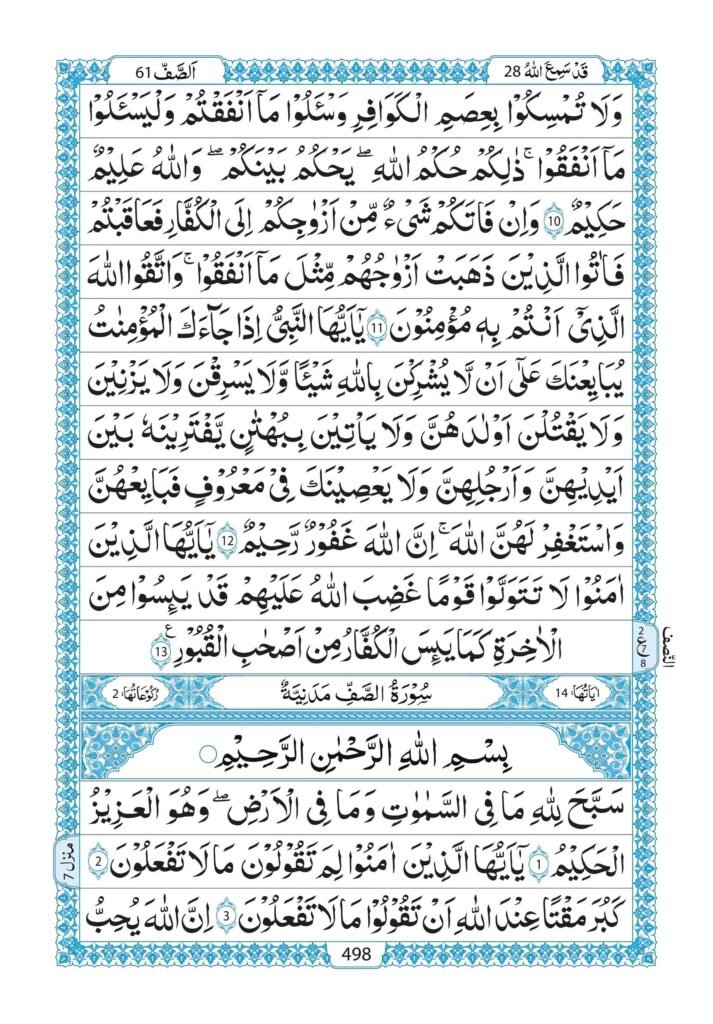 قَدْ سَمِعَ اللّٰهُ 28
اَلصَّفّ 61
وَلَا تُمْسِكُوْا بِعِصَمِ الْكَوَافِرِ وَسْـَٔلُوْا مَاۤ اَنْفَقْتُمْ وَلْيَسْـَٔلُوْا
مَاۤ اَنْفَقُوْا ۚ ذٰلِكُمْ حُكْمُ اللّٰهِ ؕ يَحْكُمُ بَيْنَكُمْ ؕ وَاللّٰهُ عَلِيْمٌ
حَكِيْمٌ 10 وَاِنْ فَاتَكُمْ شَىْءٌ مِّنْ اَزْوَاجِكُمْ اِلَى الْكُفَّارِ فَعَاقَبْتُمْ
فَاٰتُوا الَّذِيْنَ ذَهَبَتْ اَزْوَاجُهُمْ مِّثْلَ مَاۤ اَنْفَقُوْا ۚ وَاتَّقُوا اللّٰهَ
الَّذِىْۤ اَنْتُمْ بِهٖ مُؤْمِنُوْنَ 11 يٰۤاَيُّهَا النَّبِىُّ اِذَا جَآءَكَ الْمُؤْمِنٰتُ
يُبَايِعْنَكَ عَلٰٓى اَنْ لَّا يُشْرِكْنَ بِاللّٰهِ شَيْـًٔا وَّلَا يَسْرِقْنَ وَلَا يَزْنِيْنَ
وَلَا يَقْتُلْنَ اَوْلَادَهُنَّ وَلَا يَاْتِيْنَ بِبُهْتَانٍ يَّفْتَرِيْنَهٗ بَيْنَ
اَيْدِيْهِنَّ وَاَرْجُلِهِنَّ وَلَا يَعْصِيْنَكَ فِىْ مَعْرُوْفٍ فَبَايِعْهُنَّ
وَاسْتَغْفِرْ لَهُنَّ اللّٰهَ ؕ اِنَّ اللّٰهَ غَفُوْرٌ رَّحِيْمٌ 12 يٰۤاَيُّهَا الَّذِيْنَ
اٰمَنُوْا لَا تَتَوَلَّوْا قَوْمًا غَضِبَ اللّٰهُ عَلَيْهِمْ قَدْ يَئِسُوْا مِنَ
الْاٰخِرَةِ كَمَا يَئِسَ الْكُفَّارُ مِنْ اَصْحٰبِ الْقُبُوْرِ 13 ع
2
ع
8
النّصف
اٰيَاتُهَا: 14
سُوْرَةُ الصَّفِّ مَدَنِيَّةٌ
رُكُوْعَاتُهَا: 2
بِسْمِ اللّٰهِ الرَّحْمٰنِ الرَّحِيْمِ
سَبَّحَ لِلّٰهِ مَا فِى السَّمٰوٰتِ وَمَا فِى الْاَرْضِ ؕ وَهُوَ الْعَزِيْزُ
الْحَكِيْمُ 1 يٰۤاَيُّهَا الَّذِيْنَ اٰمَنُوْا لِمَ تَقُوْلُوْنَ مَا لَا تَفْعَلُوْنَ 2
منزل 7
كَبُرَ مَقْتًا عِنْدَ اللّٰهِ اَنْ تَقُوْلُوْا مَا لَا تَفْعَلُوْنَ 3 اِنَّ اللّٰهَ يُحِبُّ
498